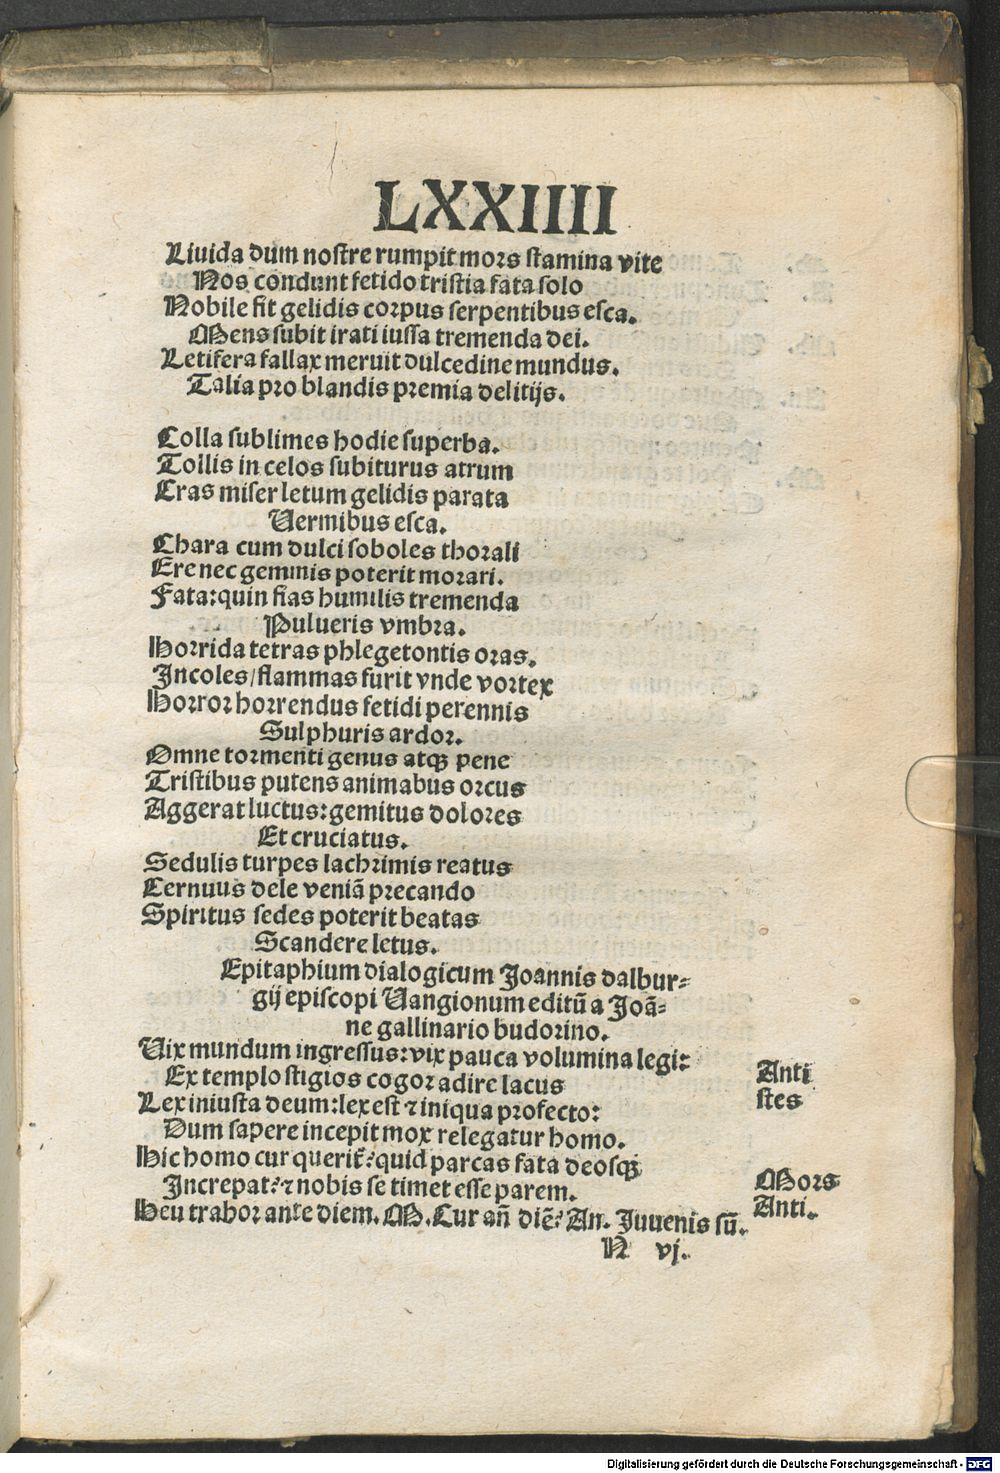 LXXIIII
Liuida dum nostre rumpit mors stamina vite
Nos condunt fetido tristia fata solo
Nobile fit gelidis corpus serpentibus esca.
Mens subit irati iussa tremenda dei.
Letifera fallax meruit dulcedine mundus.
Talia pro blandis premia delitijs.
Colla sublimes hodie superba.
Tollis in celos subiturus atrum
Cras miser letum gelidis parata
Uermibus esca.
Chara cum dulci soboles thorali
Ere nec gemmis poterit morari.
Fata: quin fias humilis tremenda
Pulueris vmbra.
Horrida tetras phlegetontis oras.
Incoles/flammas furit vnde vortex
Horror horrendus fetidi perennis
Sulphuris ardor.
Omne tormenti genus atqꝫ pene
Tristibus putens animabus orcus
Aggerat luctus: gemitus dolores
Et cruciatus.
Sedulis turpes lachrimis reatus
Cernuus dele veniā precando
Spiritus sedes poterit beatas
Scandere letus.
Epitaphium dialogicum Joannis dalbur⸗
gij episcopi Uangionum editū a Joā⸗
ne gallinario budorino.
Uix mundum ingressus: vix pauca volumina legi:
Ex templo stigios cogor adire lacus
Lex iniusta deum: lex est ⁊ iniqua profecto:
Dum sapere incepit mox relegatur homo.
Hic homo cur querit̄? quid parcas fata deosqꝫ
Increpat? ⁊ nobis se timet esse parem.
Heu trahor ante diem. M. Cur an̄ diē? An. Juuenis sū.
Anti
stes
Mors
Anti.
N vj.
Digitalisierung gefördert durch die Deutsche Forschungsgemeinschaft - DFG